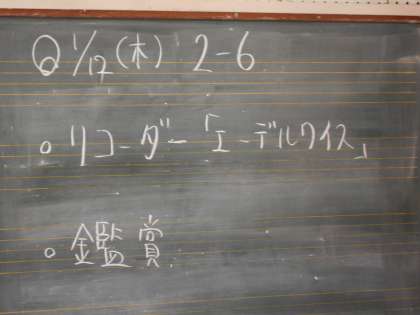 Q 1/12(木) 2-6
○ リコーダー「エーデルワイス」
○ 鑑賞